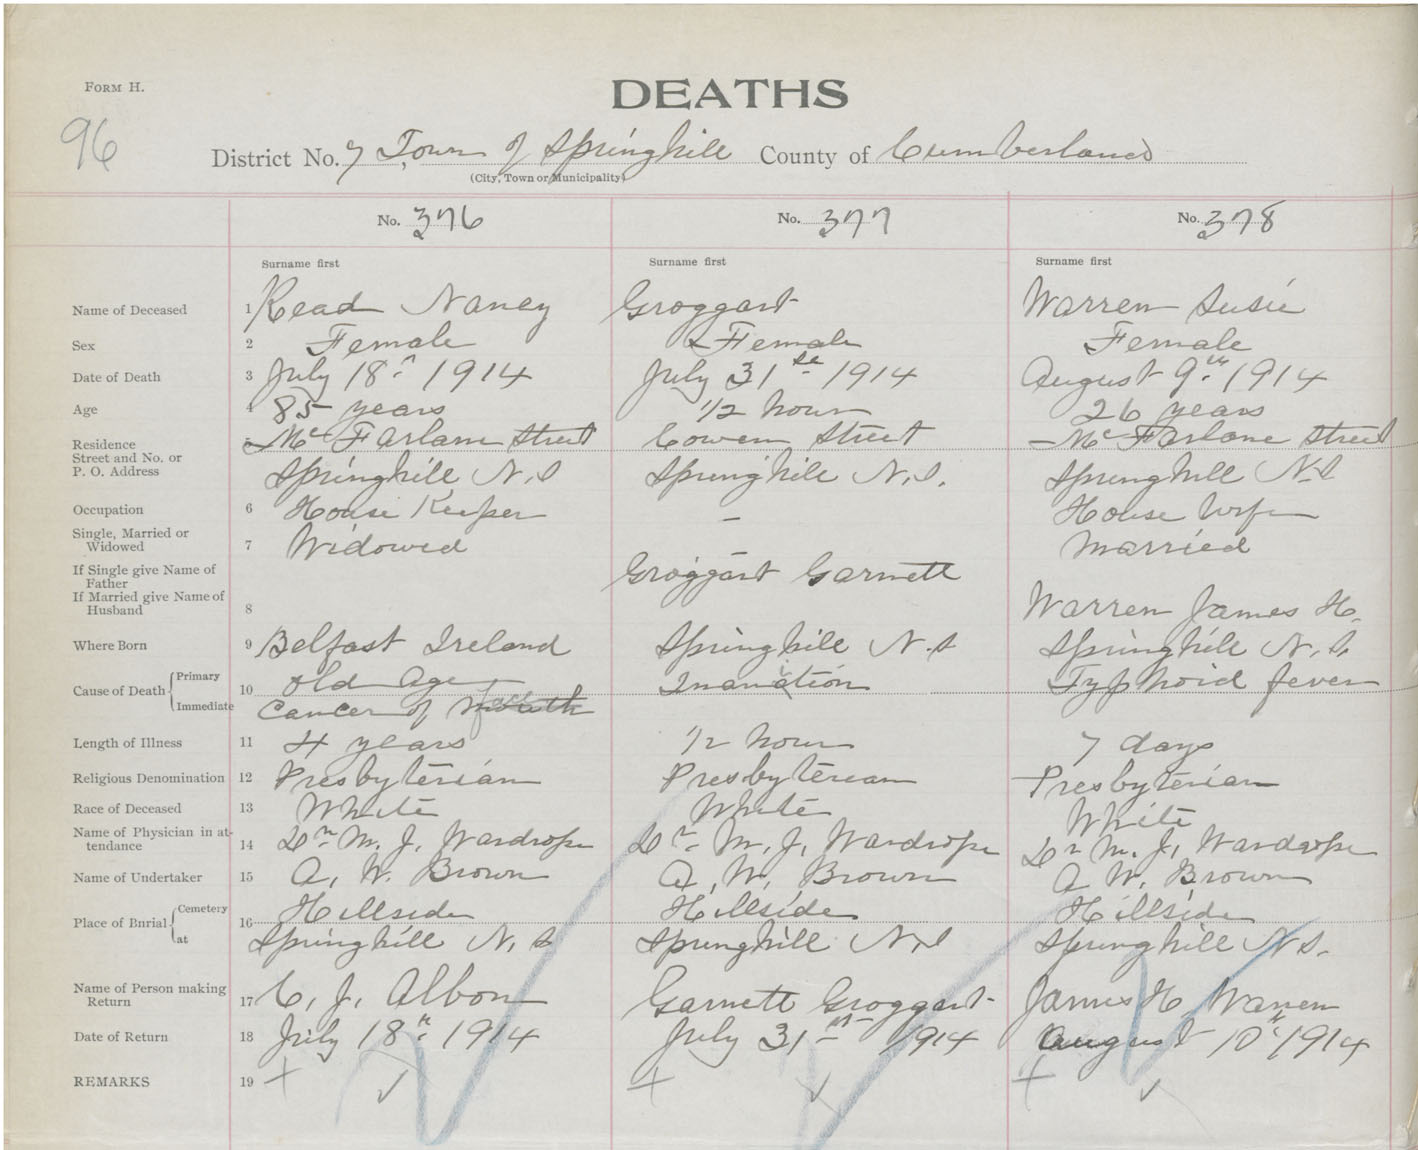 FORM H.
DEATHS
96
District No. 7 Town of Springhill County of Cumberland
(City, Town or Municipality)
No. 376 No. 377 No. 378
Surname first Surname first Surname first
Name of Deceased 1 Read Nancy Groggart Warren Susie
Sex 2 Female Female Female
Date of Death 3 July 18th 1914 July 31st 1914 August 9th 1914
Age 4 85 years 1/2 hour 26 years
Residence 5 McFarlane Street Cowen Street McFarlane Street
Street and No. or
P. O. Address Springhill N.S Springhill N.S. Springhill N.S
Occupation 6 House Keeper – House Wife
Single, Married or
Widowed 7 Widowed Married
If Single give Name of
Father Groggart Garnett
If Married give Name of
Husband 8 Warren James H.
Where Born 9 Belfast Ireland Springhill N.S Springhill N.S.
Cause of Death Primary 10 Old Age Inanition Typhoid fever
Immediate Cancer of mouth face
Length of Illness 11 4 years 1/2 hour 7 days
Religious Denomination 12 Presbyterian Presbyterian Presbyterian
Race of Deceased 13 White White White
Name of Physician in at-
tendance 14 Dr. M. J. Wardrope Dr. M. J. Wardrope Dr M. J. Wardrope
Name of Undertaker 15 A. W. Brown A. W. Brown A W. Brown
Place of Burial Cemetery 16 Hillside Hillside Hillside
at Springhill N.S Springhill N.S Springhill N S.
Name of Person making
Return 17 C. J. Albon Garnett Groggart James H. Warren
Date of Return 18 July 18th 1914 July 31st 1914 August 10th 1914
REMARKS 19 + ✓ + ✓ + ✓